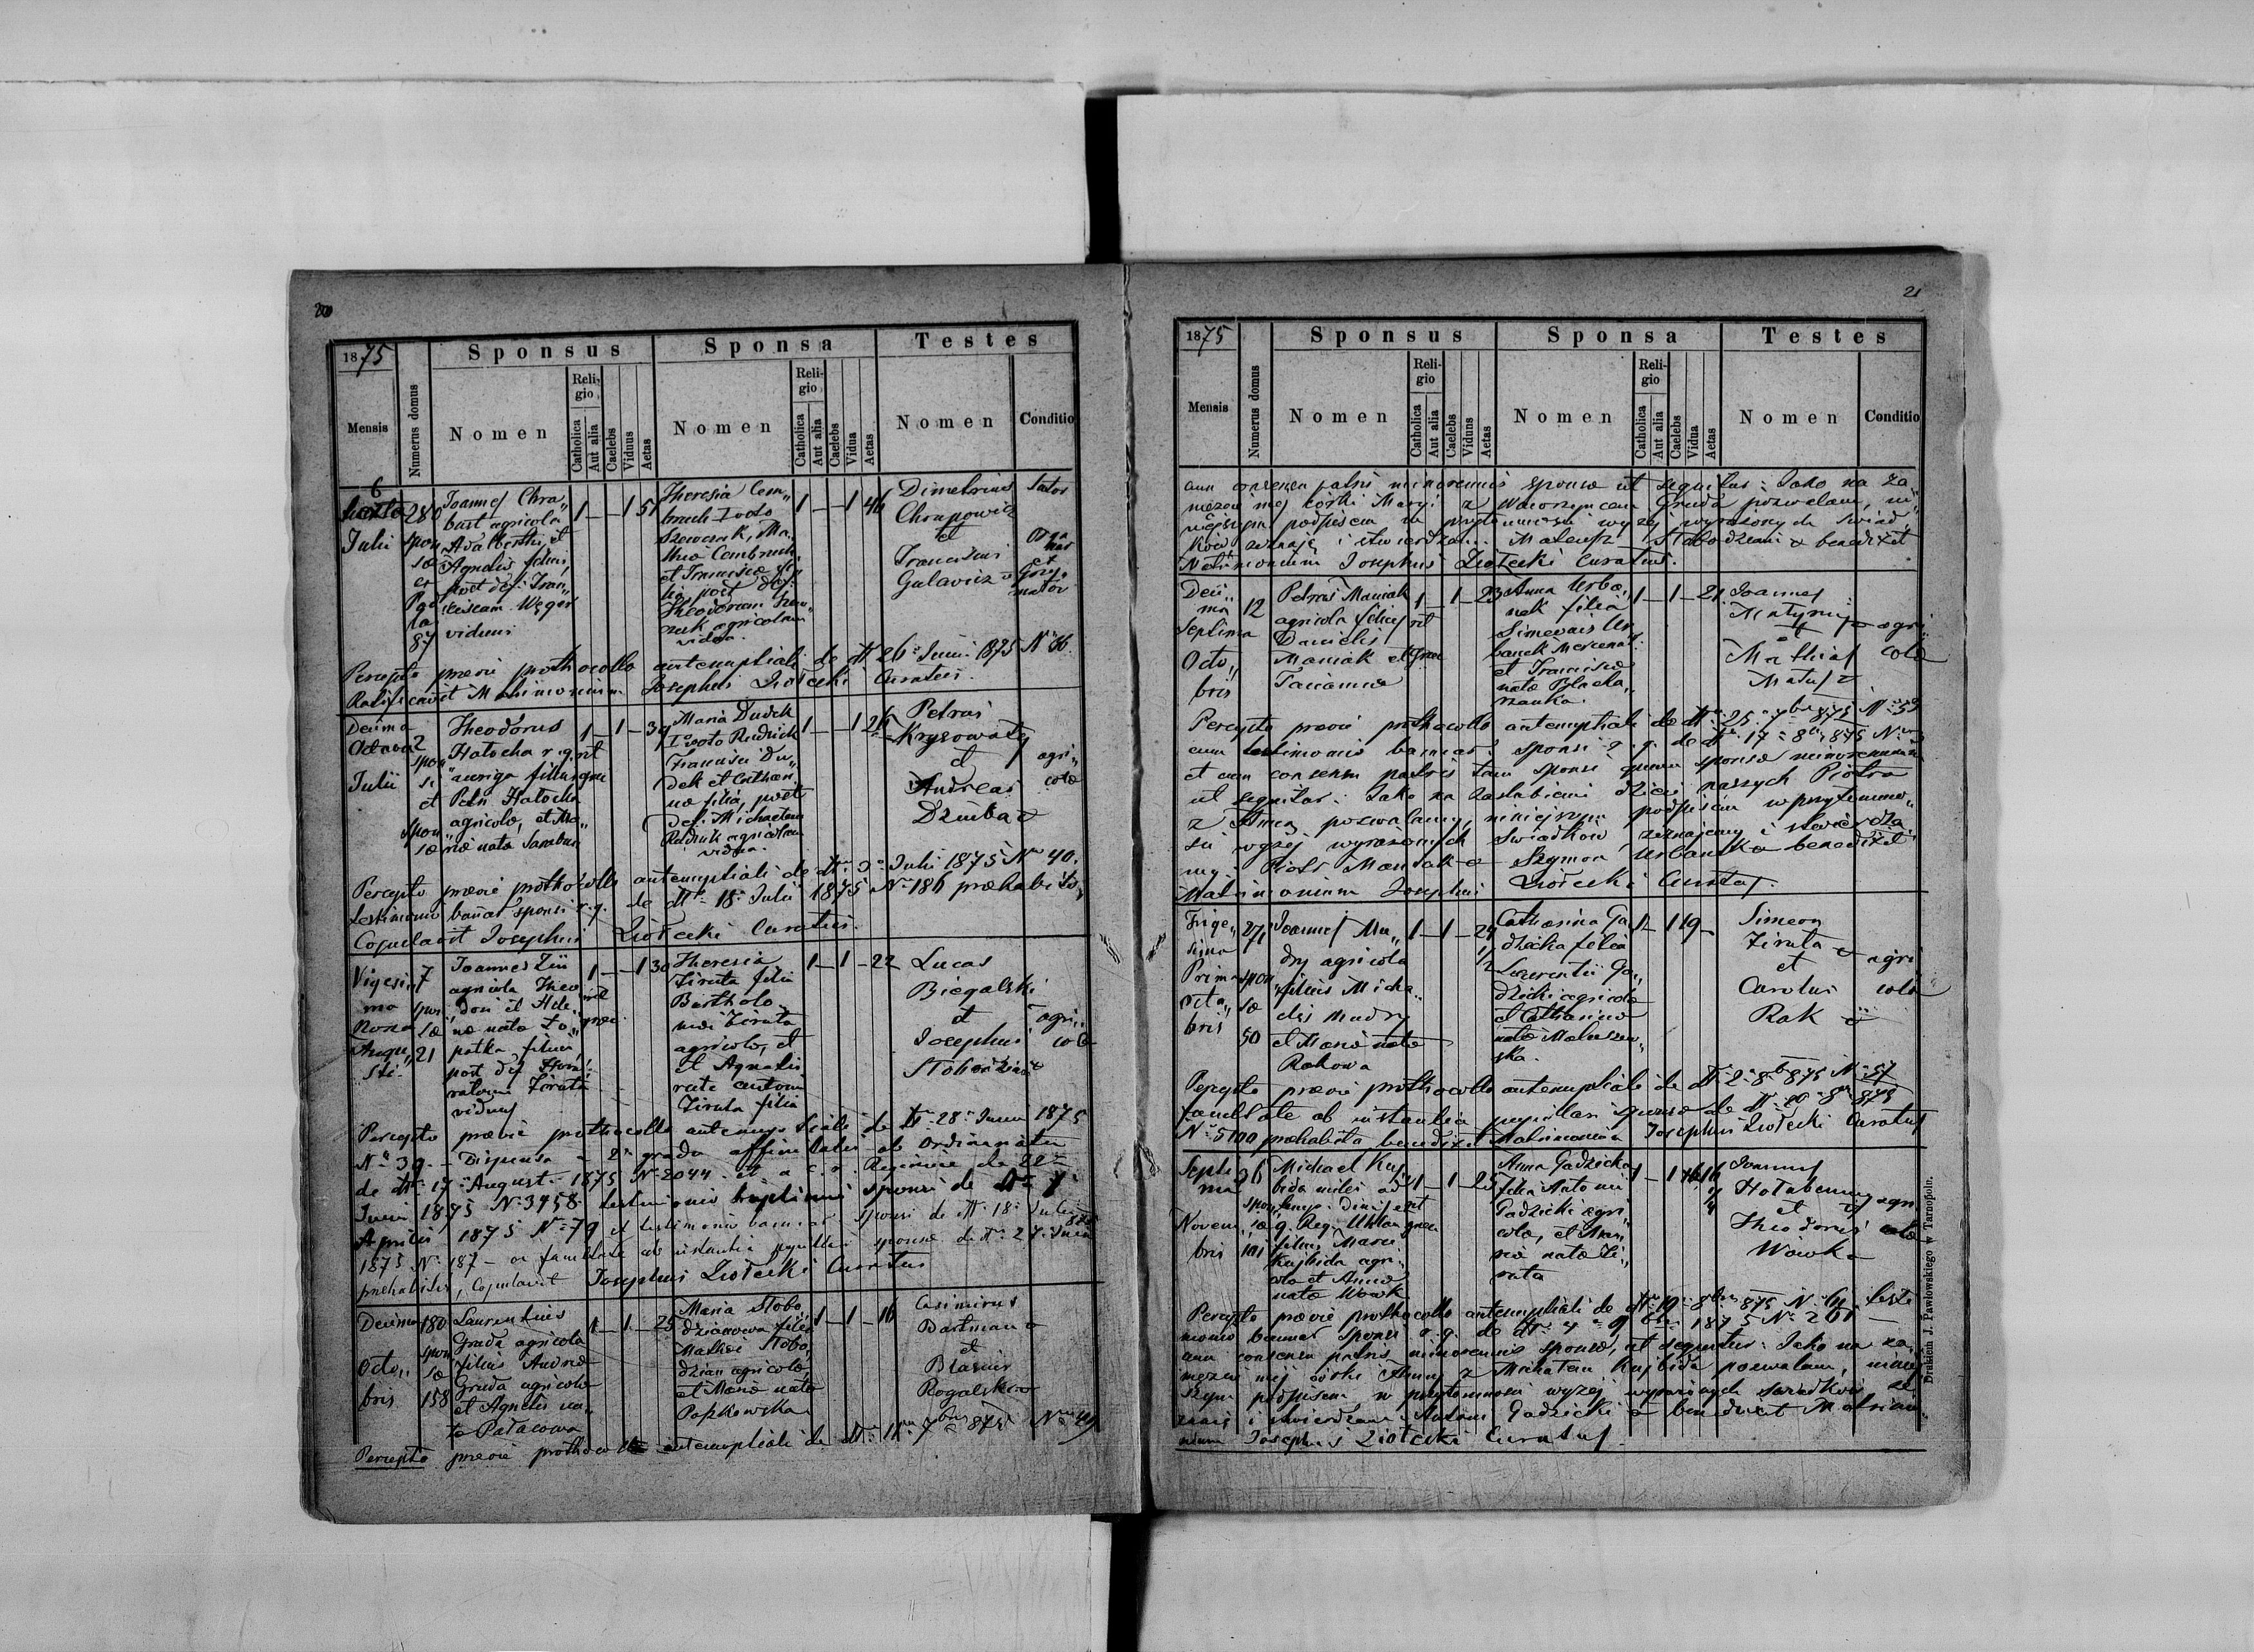 20
1875
Sponsus
Sponsa
Testes
Mensis
Numerus domus
Nomen
Religio
Catholica
Aut alia
Caelebs
Viduus
Aetas
Nomen
Religio
Catholica
Aut alia
Caelebs
Vidua
Aetas
Nomen
Conditio
6
Sexta
Julii
280
spon
sæ
et
87
Joannes Chra„
bust agricola
Adalberti, et
Agnetis filius,
post def. Fran„
ciscam Węger
viduus
1 — — 1 51
Theresia Cem„
bruch I voto
Szewczuk, Ma„
thiæ Cembruch
et Franciscæ fi„
lia, post def.
Theodorum Szew„
czuk agricolam
vidua.
1 — — 1 46
Dimetrius
Chrapowicz
et
Franciscus
Gulawicz
Sutor
Orga
nar
et
Percepto prævie prothocollo antenuptiali de dto 26 Junii 1875 No 36
Ratificavit Matrimonium Josephus Ziołecki Curatus.
Decima
Octava
Julii
2
spon
si
et
spon
sæ
Theodorus
Hałocha r. g.
auriga filius
Petri Hałocha
agricolæ, et Ma„
riæ natæ
1 — 1 — 39
rit
græ
Maria Dudek
I voto Rudzick
Francisci Du„
dek et Cathari
næ filia, post
def. Michaelem
agricolam
vidua.
1 — — 1 26
Petrus
Krysowaty
et
Andreas
Dziuba
agri„
colæ
Percepto prævie prothocollo antenuptiali de dto 3 Julii 1875 No 40.
testimonio bannor. sponsi r. g. de dto 18 Julii 1875 No 186 præhabito,
Copulavit Josephus Ziołecki Curatus.
Vigesi
ma
Nona
Augu„
sti
7
spon
sæ
21
Joannes Zii
agricola Theo
dori et Hele„
næ natæ Ło„
patka filius,
post def. Hono„
ratam Ziruta
viduus
1 — — 1 30
rit
græ
Theresia
Ziruta filia
Bartholo„
mæi Ziruta
agricolæ, et
et Agnetis
natæ
Ziruta filia
1 — 1 — 22
Lucas
Biegalski
et
Josephus
Słobodzian
agri„
colæ
Percepto prævie prothocollo antenuptiali de dto 28 Junii 1875
No 39. — Dispensa a 2o gradu affinitatis ab Ordinariatu
de dto 17 August 1875 No 2044 et a c. r. Regimine de 22
Junii 1875 No 3458 testimonio baptismi sponsi de dto 1
Aprilis 1875 No 79 et testimonio bannor. sponsi de dto 18 Julii
1875 No 187 — ac facultate ab instantia pupillari sponsæ de dto 27 Junii 875
præhabitis, Copulavit Josephus Ziołecki Curatus
Decima
Octo„
bris
180
spon
sæ
158
Laurentius
Gruda agricola
filius Andreæ
Gruda agricolæ
et Agnetis na„
tæ Pałacowa
1 — 1 — 25
Maria Słobo„
dzianowa filia
Mathæi Słobo„
dzian agricolæ,
et Mariæ natæ
Papkowska
1 — 1 — 16
Casimirus
Bartman
et
Blasius
Rogalski
Percepto prævie prothocollo antenuptiali de dto 11 7bris 875 No 49
21
1875
Sponsus
Sponsa
Testes
Mensis
Numerus domus
Nomen
Religio
Catholica
Aut alia
Caelebs
Viduus
Aetas
Nomen
Religio
Catholica
Aut alia
Caelebs
Vidua
Aetas
Nomen
Conditio
cum consensu patris minorennis sponsæ ut sequitur: Jako na za„
męście mej córki Maryi z Wawrzyńcem Gruda pozwalam, ni„
niejszym podpisem w przytomności wyżej wyrażonych świad„
ków zeznaję i stwierdzam. Mateusz Słobodzian benedixit
Matrimonium Josephus Ziołecki Curatus.
Deci„
ma
Septima
Octo„
bris
12
Petrus Maniak
agricola filius
Danielis
Maniak et
Tacianna
1 — 1 — 23
rit
græ
Anna Urba„
nek filia
Simeonis Ur„
banek
et Franciscæ
natæ
1 — 1 — 21
Joannes
et
Mathias
Matusz
agri
colæ
Percepto prævie prothocollo antenuptiali de dto 25 7bris 875 No 53
cum testimonio bannor. sponsi r. g. de dto 17 8bris 875 No
et cum consensu patris tam sponsi quam sponsæ minorennium
ut sequitur: Jako na zaślubieni dzieci naszych Piotra
z Anną pozwalamy, niniejszym podpisem w przytomno„
ści wyżej wyrażonych świadków zeznajemy i stwierdza
my. Piotr Maniak Szymon Urbanek benedixit
Matrimonium Josephus Ziołecki Curatus.
Trige„
sima
Prima
Octo„
bris
271
spon
sæ
50
Joannes Mu„
dry agricola
filius Micha„
elis Mudry
et Mariæ natæ
Rakowa
1 — 1 — 24
1/2
Catharina Ga
dzicka filia
Laurentii Ga„
dzicki agricolæ
et Catharinæ
natæ Maluszew„
ska.
1 — 1 19 —
Simeon
Ziruta
et
Carolus
Rak
agri
colæ
Percepto prævie prothocollo antenuptiali de dto 2 8bris 875 No 57
facultate ab instantia pupillari sponsæ de dto 8bris 875
No 5100 præhabita benedixit Matrimonium Josephus Ziołecki Curatus
Septi
ma
Novem
bris
36
spon
sæ
101
Michael Kuj„
bida miles ad
temp. dimis. ex
9. Reg. Uhlan
filius Marci
Kujbida agri„
colæ et Annæ
natæ Wowk
1 — 1 — 25
rit
græ
Anna Gadzicka
filia Antonii
Gadzicki agri„
colæ, et Ma„
riæ natæ Zi„
ruta
1 — 1 16
Joannes
et
Theodorus
Wowk
agri
colæ
Percepto prævie prothocollo antenuptiali de dto 19 8bris 875 No 61 testi
monio bannor. sponsi r. g. de dto 4 9bris 1875 No 261 —
cum consensu patris minorennis sponsæ, ut sequitur: Jako na za„
męście mej córki Anny z Michałem Kujbida pozwalam, niniej
szym podpisem w przytomności wyżej wyrażonych świadków ze„
znaję i stwierdzam. Antoni Gadzicki benedixit Matrimo„
nium Josephus Ziołecki Curatus.
Drukiem J. Pawłowskiego w Tarnopolu.